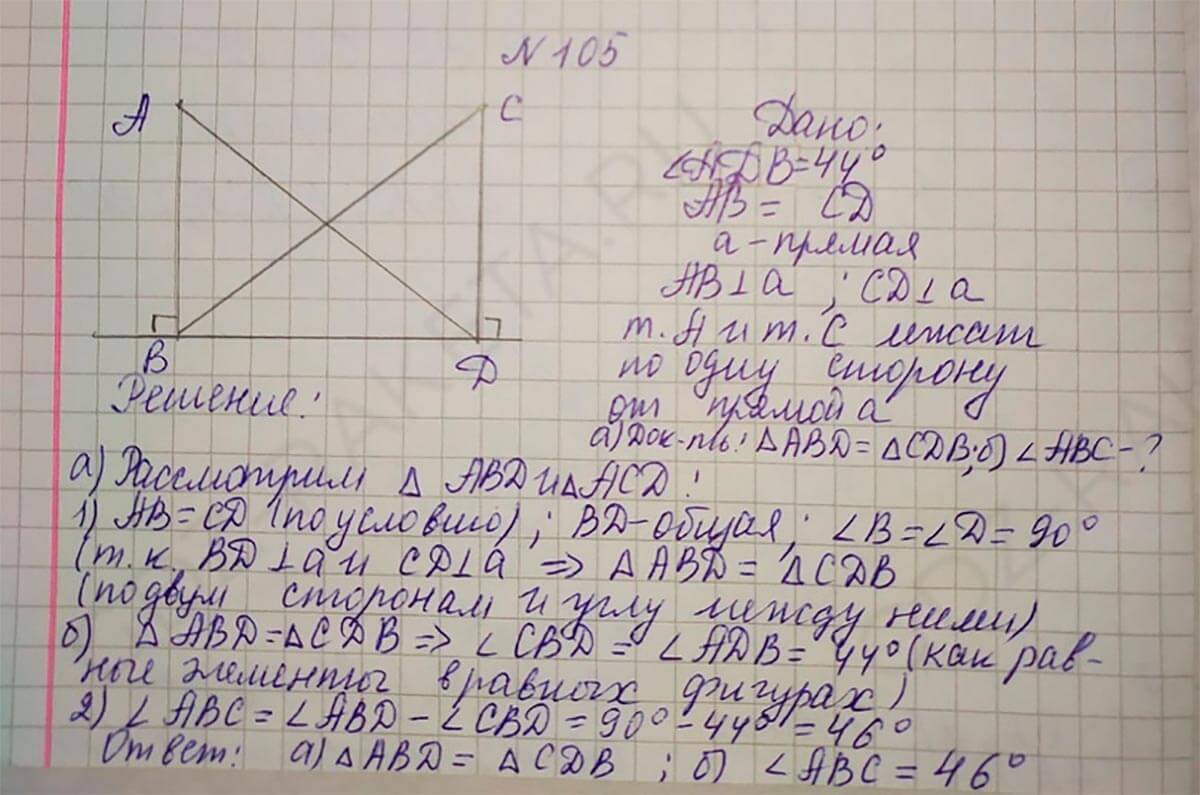 N 105
A
C
B
D
Дано:
∠ADB=44°
AB = CD
a - прямая
AB⊥a ; CD⊥a
т. A и т. C лежат
по одну сторону
от прямой a
а) Док-ть: △ABD = △CDB; б) ∠ABC - ?
Решение:
а) Рассмотрим △ ABD и △ACD:
1) AB=CD (по условию); BD-общая; ∠B=∠D=90°
(т.к. BD⊥a и CD⊥a ⇒ △ABD = △CDB
(по двум сторонам и углу между ними)
б) △ABD=△CDB ⇒ ∠CBD = ∠ADB= 44° (как рав-
ные элементы в равных фигурах)
2) ∠ABC = ∠ABD - ∠CBD = 90° - 44° = 46°
Ответ: а) △ABD = △CDB ; б) ∠ABC = 46°